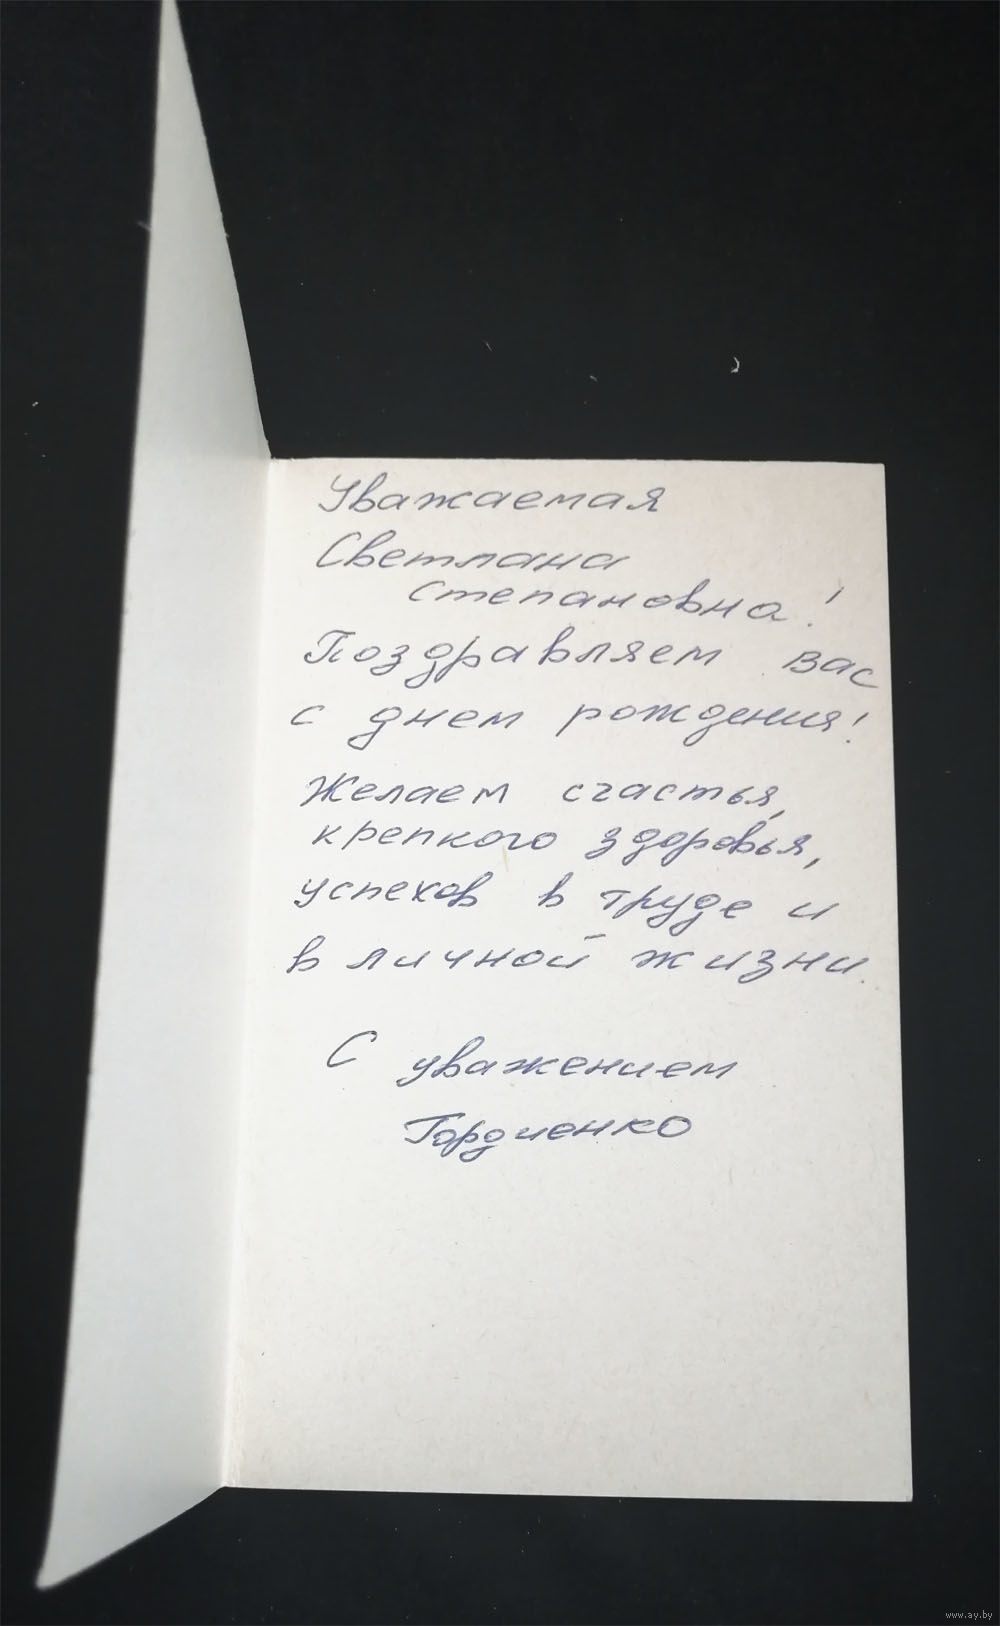 Уважаемая
Светлана
Степановна!
Поздравляем Вас
с днем рождения!
Желаем счастья,
крепкого здоровья,
успехов в труде и
в личной жизни.
С уважением
Гордиенко
www.ay.by